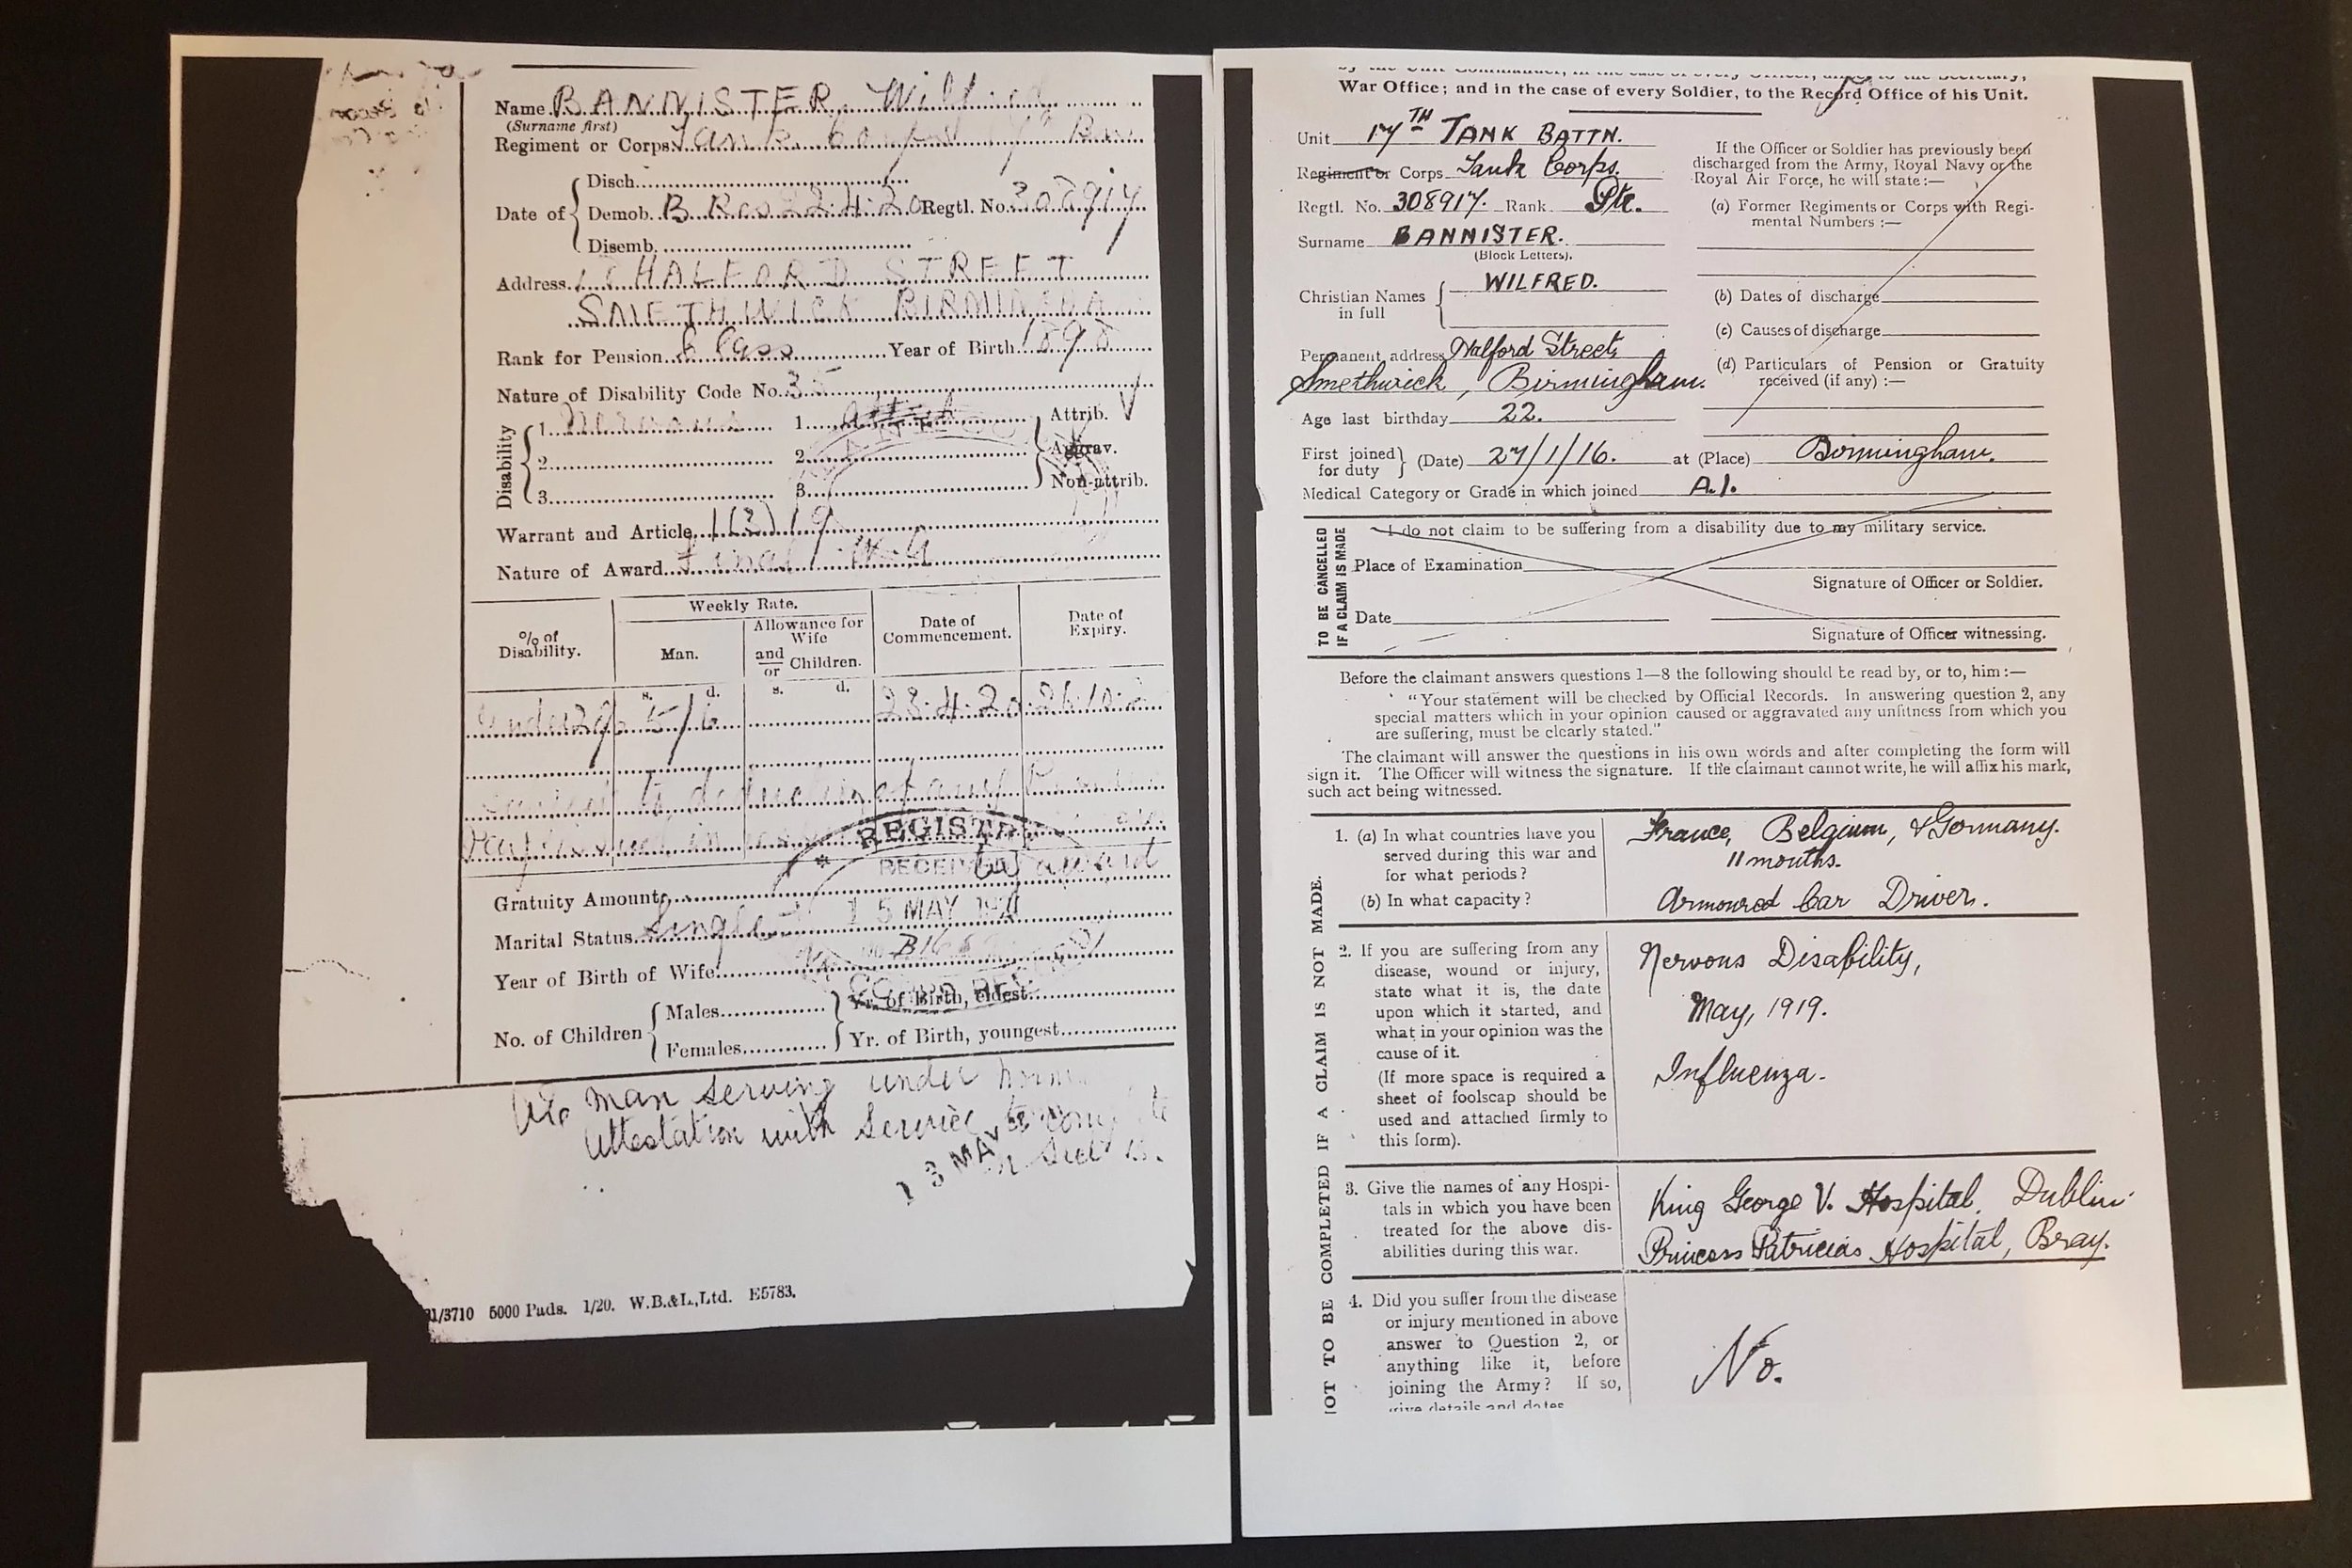 Name BANNISTER, Wilfred
(Surname first)
Regiment or Corps Tank Corps 17th Bn
Disch.
Date of Demob. B Res 22.4.20 Regtl. No. 308917
Disemb.
Address HALFORD STREET
SMETHWICK BIRMINGHA
Rank for Pension Class Year of Birth 1898
Nature of Disability Code No. 35
Disability
1. Nervous 1. Attrib.
2. 2. Aggrav.
3. 3. Non-attrib.
Warrant and Article 1(3) 19
Nature of Award Final W.A
% of Disability.
Weekly Rate.
Man.
Allowance for Wife and/or Children.
Date of Commencement.
Date of Expiry.
s. d. s. d.
Under 20 5/6 23.4.20 26.10.2
to deduction of any
REGIST
award
Gratuity Amount
15 MAY
Marital Status Single
Year of Birth of Wife
No. of Children
Males Yr. of Birth, eldest
Females Yr. of Birth, youngest
man serving under
Attestation with Service to complete
13 MAY
31/3710 5000 Pads. 1/20. W.B.&L.,Ltd. E5783.
by the Unit Commander, in the case of every Officer, to the Secretary,
War Office; and in the case of every Soldier, to the Record Office of his Unit.
Unit 17TH TANK BATTN.
Regiment or Corps Tank Corps.
Regtl. No. 308917. Rank Pte.
Surname BANNISTER.
(Block Letters).
Christian Names in full WILFRED.
Permanent address Halford Street,
Smethwick, Birmingham.
Age last birthday 22.
First joined for duty } (Date) 27/1/16. at (Place) Birmingham.
Medical Category or Grade in which joined A.1.
If the Officer or Soldier has previously been
discharged from the Army, Royal Navy or the
Royal Air Force, he will state:—
(a) Former Regiments or Corps with Regi-
mental Numbers :—
(b) Dates of discharge
(c) Causes of discharge
(d) Particulars of Pension or Gratuity
received (if any) :—
TO BE CANCELLED
IF A CLAIM IS MADE
I do not claim to be suffering from a disability due to my military service.
Place of Examination
Signature of Officer or Soldier.
Date
Signature of Officer witnessing.
Before the claimant answers questions 1—8 the following should be read by, or to, him :—
"Your statement will be checked by Official Records. In answering question 2, any
special matters which in your opinion caused or aggravated any unfitness from which you
are suffering, must be clearly stated."
The claimant will answer the questions in his own words and after completing the form will
sign it. The Officer will witness the signature. If the claimant cannot write, he will affix his mark,
such act being witnessed.
NOT TO BE COMPLETED IF A CLAIM IS NOT MADE.
1. (a) In what countries have you
served during this war and
for what periods?
(b) In what capacity?
France, Belgium, & Germany.
11 months.
Armoured Car Driver.
2. If you are suffering from any
disease, wound or injury,
state what it is, the date
upon which it started, and
what in your opinion was the
cause of it.
(If more space is required a
sheet of foolscap should be
used and attached firmly to
this form).
Nervous Disability,
May, 1919.
Influenza.
3. Give the names of any Hospi-
tals in which you have been
treated for the above dis-
abilities during this war.
King George V. Hospital, Dublin
Princess Patricias Hospital, Bray.
4. Did you suffer from the disease
or injury mentioned in above
answer to Question 2, or
anything like it, before
joining the Army? If so,
give details and dates
No.